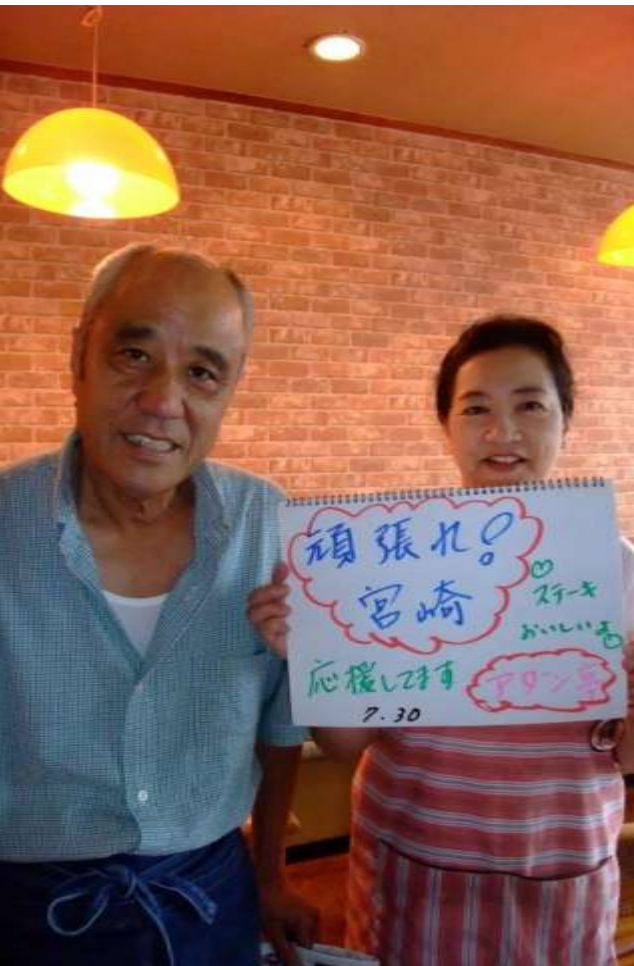 頑張れ!
宮崎
ステーキ
おいしいよ
応援してます
アダン亭
7.30